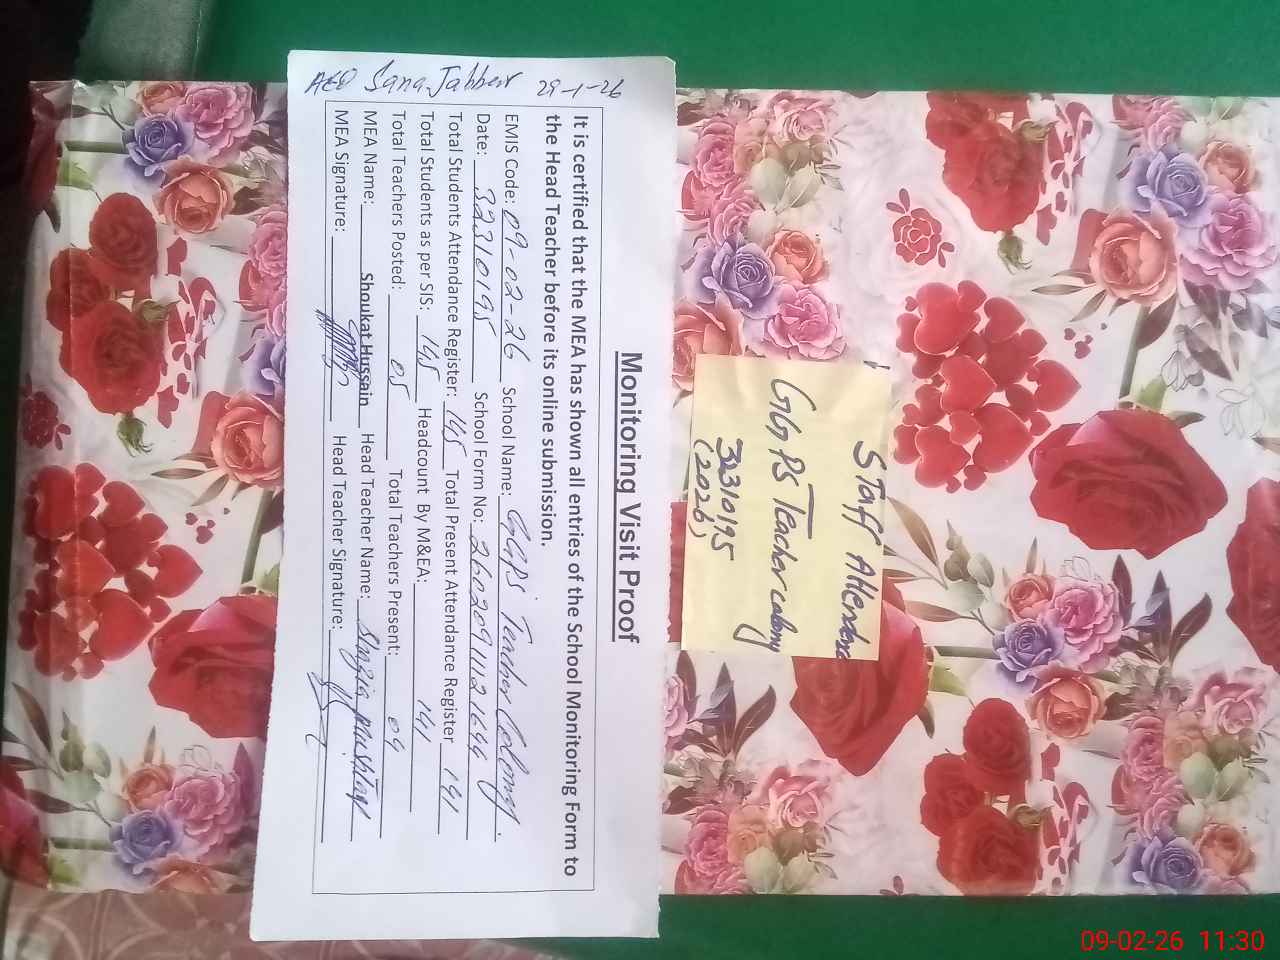 Monitoring Visit Proof
It is certified that the MEA has shown all entries of the School Monitoring Form to
the Head Teacher before its online submission.
EMIS Code: 09-02-26 School Name: GGPS Teacher Colony.
Date: 32310195 School Form No: 26020911121644
Total Students Attendance Register: 145 Total Present Attendance Register 141
Total Students as per SIS: 145 Headcount By M&EA: 141
Total Teachers Posted: 05 Total Teachers Present: 04
MEA Name: Shoukat Hussain Head Teacher Name: Shazia
MEA Signature: Head Teacher Signature:
AEO Sana Jabbar 29-1-26
Staff Attendence
GGPS Teacher colony
32310195
(2026)
09-02-26 11:30